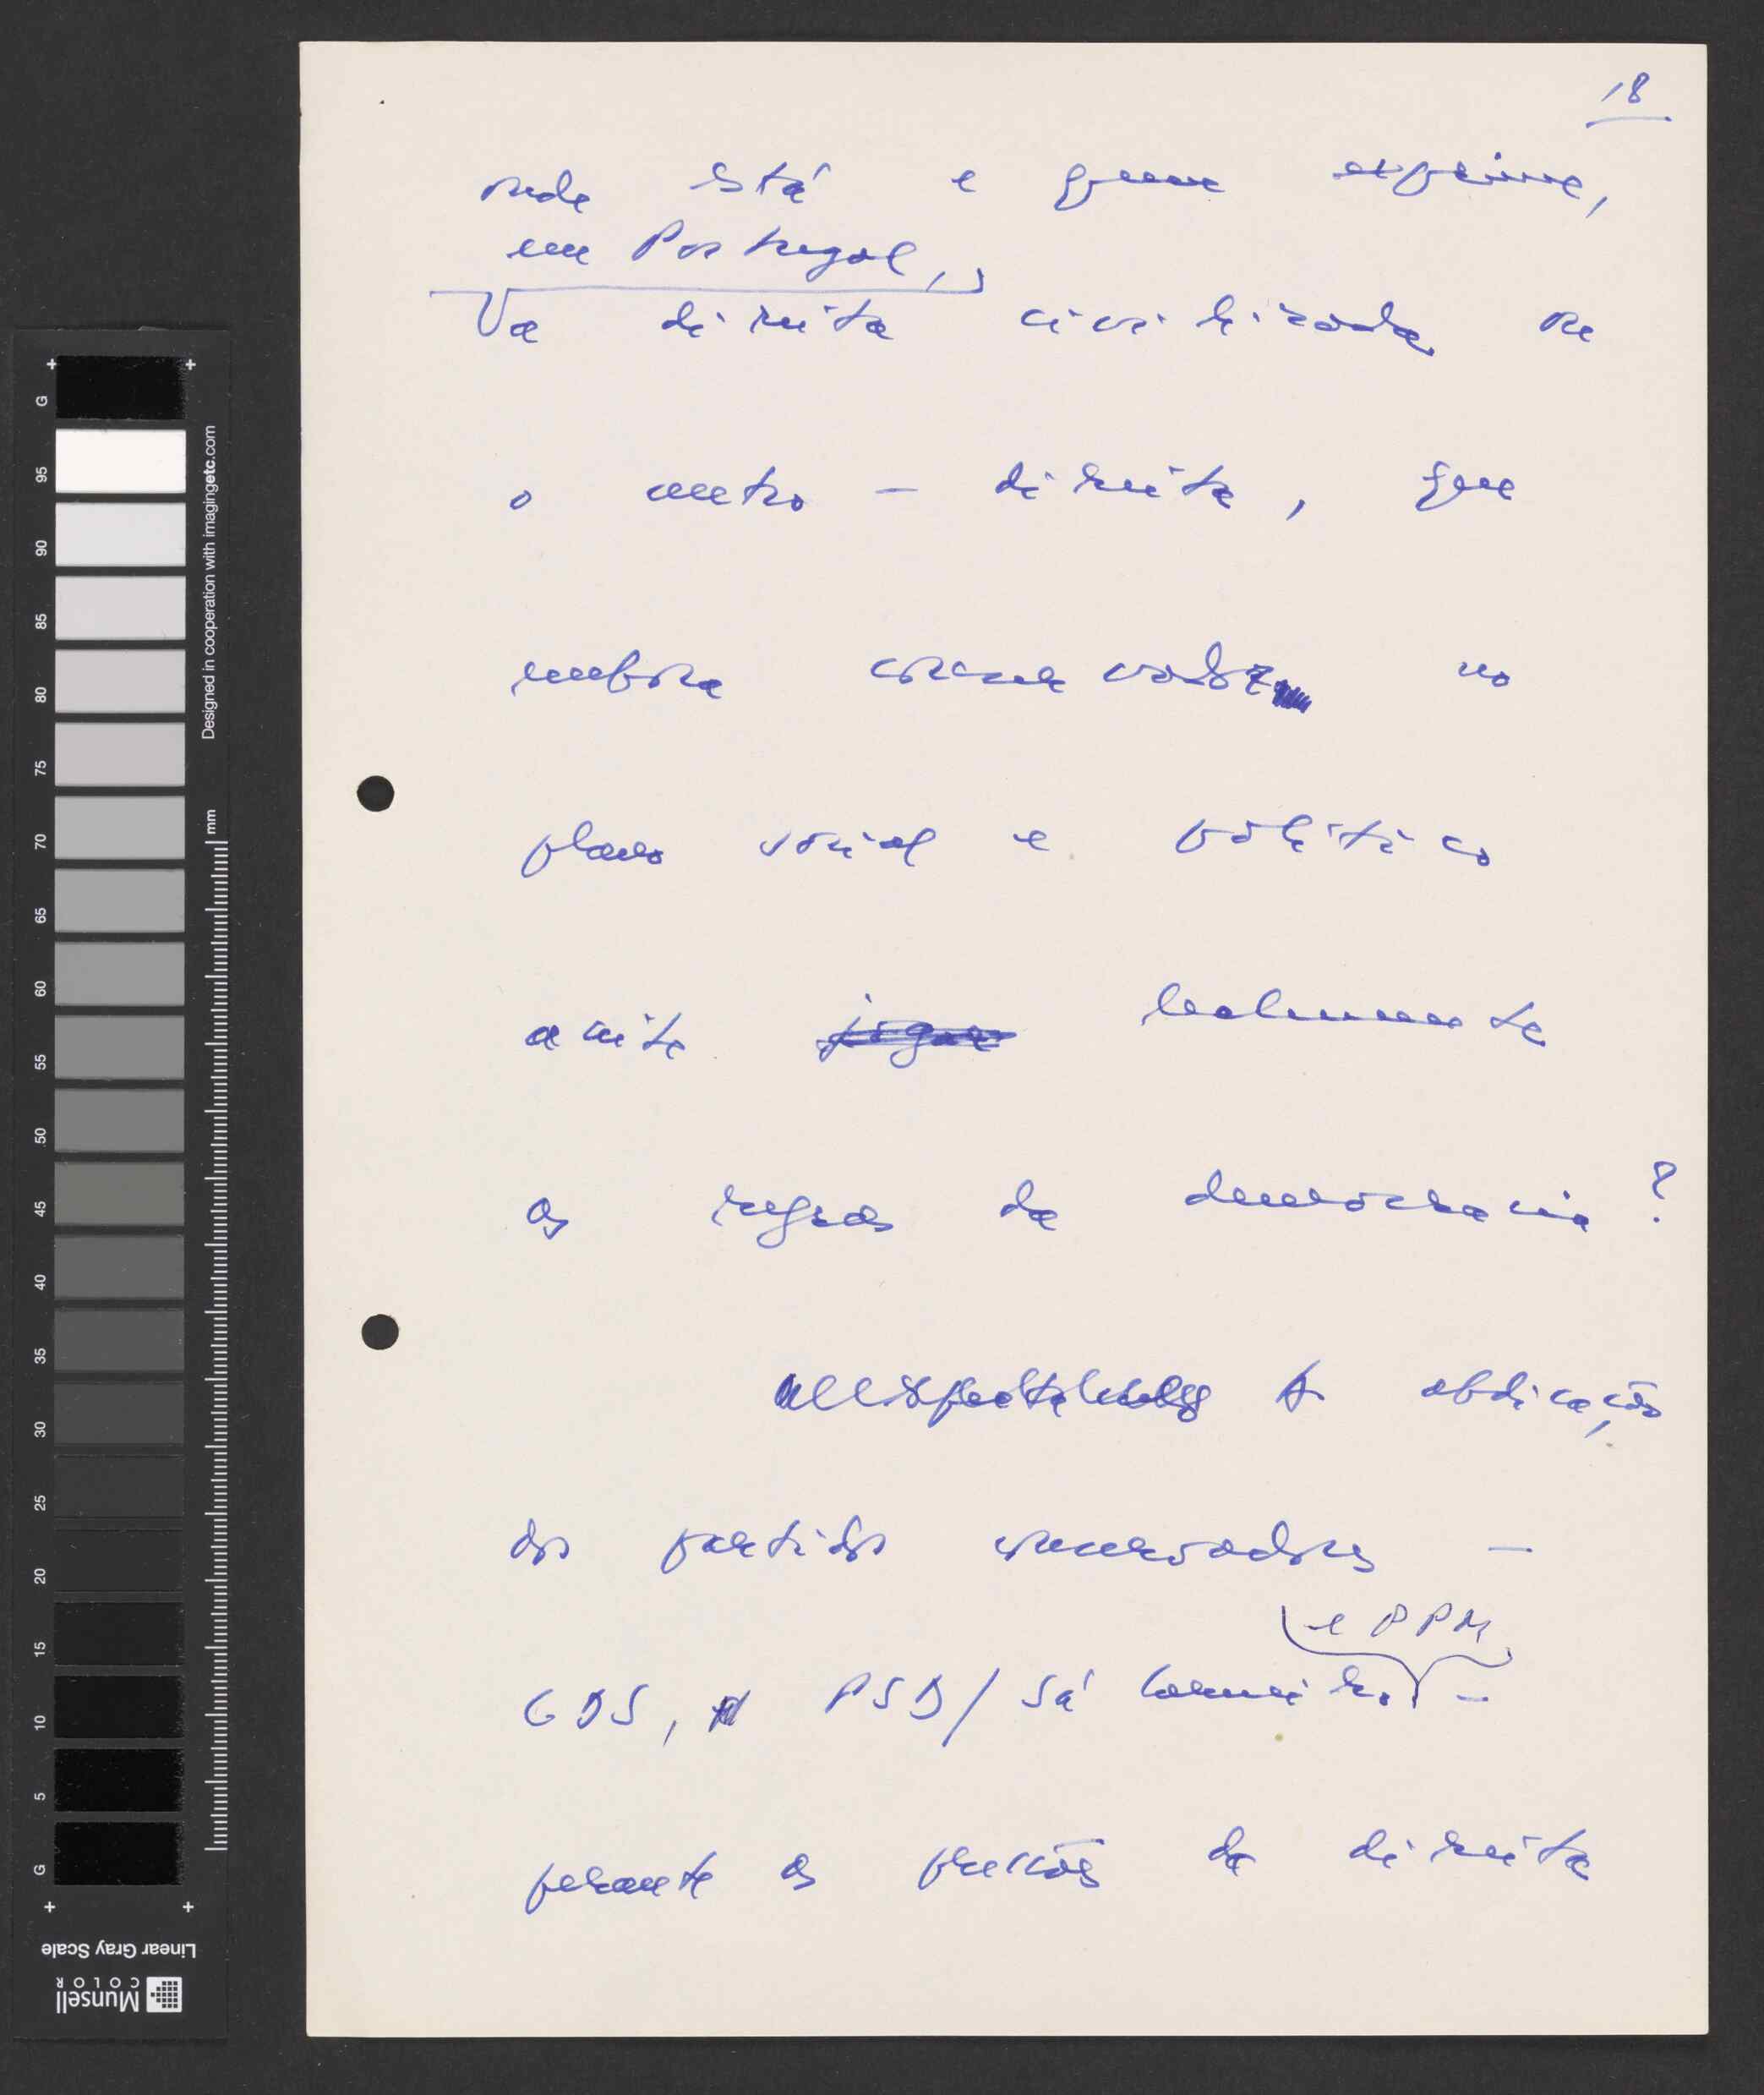 18
onde está e quem exprime,
em Portugal,
a direita civilizada ou
o centro - direita, que
embora conservador no
plano social e político
aceite jogar lealmente
as regras da democracia?
A abdicação
dos partidos conservadores -
e PPM
CDS, PSD/Sá Carneiro -
perante as pressões da direita
G 95 90 85 80 75 70 65 60 55 50 45 40 35 30 25 20 15 10 5 G
Designed in cooperation with imagingetc.com
mm
Linear Gray Scale
Munsell
COLOR